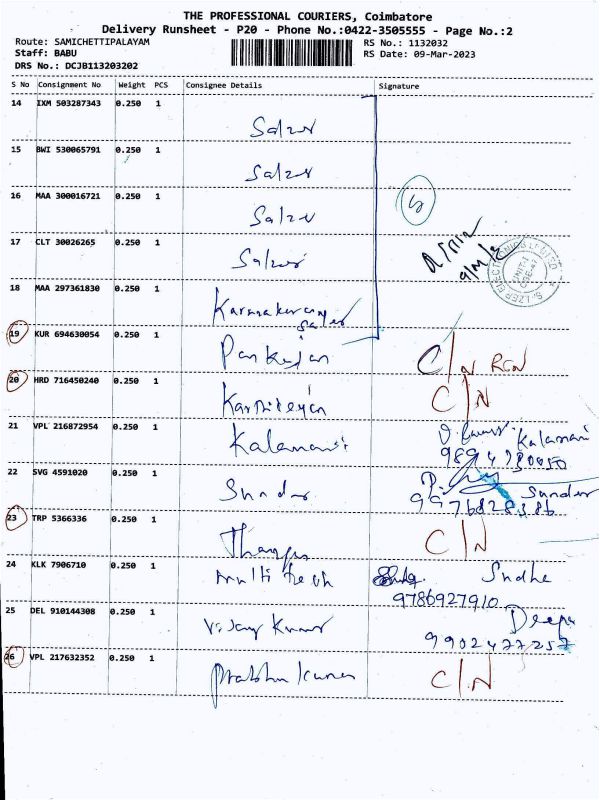 THE PROFESSIONAL COURIERS, Coimbatore
Delivery Runsheet - P20 - Phone No.:0422-3505555 - Page No.:2
Route: SAMICHETTIPALAYAM RS No.: 1132032
Staff: BABU RS Date: 09-Mar-2023
DRS No.: DCJB113203202
S No Consignment No Weight PCS Consignee Details Signature
14 IXM 503287343 0.250 1
Salzer
15 BWI 530065791 0.250 1
Salzer
16 MAA 300016721 0.250 1
Salzer
5
17 CLT 30026265 0.250 1
Salzer
18 MAA 297361830 0.250 1
Salzer
19 KUR 694630054 0.250 1
Pankajan C/N
20 HRD 716450240 0.250 1
Karthikeyan C/N
21 VPL 216872954 0.250 1
Kalamani Kalamani
22 SVG 4591020 0.250 1
Sundar Sundar
9976828386
23 TRP 5366336 0.250 1
C/N
24 KLK 7906710 0.250 1
Multi tech Sudha
9786927910
25 DEL 910144308 0.250 1
Vijay Kumar Deepa
9902477257
26 VPL 217632352 0.250 1
Prabhu Kumar C/N